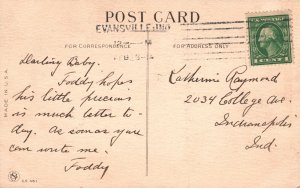 POST CARD
EVANSVILLE, IND
FOR CORRESPONDENCE
FOR ADDRESS ONLY
1 CENT 1
MADE IN U.S.A.
Darling Baby.
Foddy hopes
his little precious
is much better to-
day. As soon as you
can write me.
Foddy
Katherine Raymond
2034 College Ave.
Indianapolis
Ind.